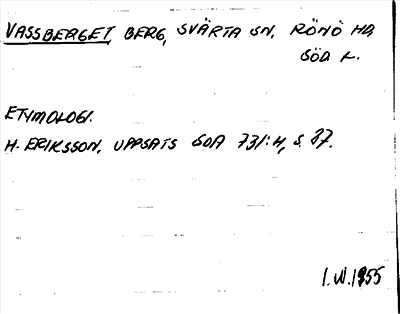 VASSBERGET, BERG, SVÄRTA SN, RÖNÖ HD,
SÖD L.
ETYMOLOGI.
H. ERIKSSON, UPPSATS SOA 731:H, S. 87.
I.W.1955